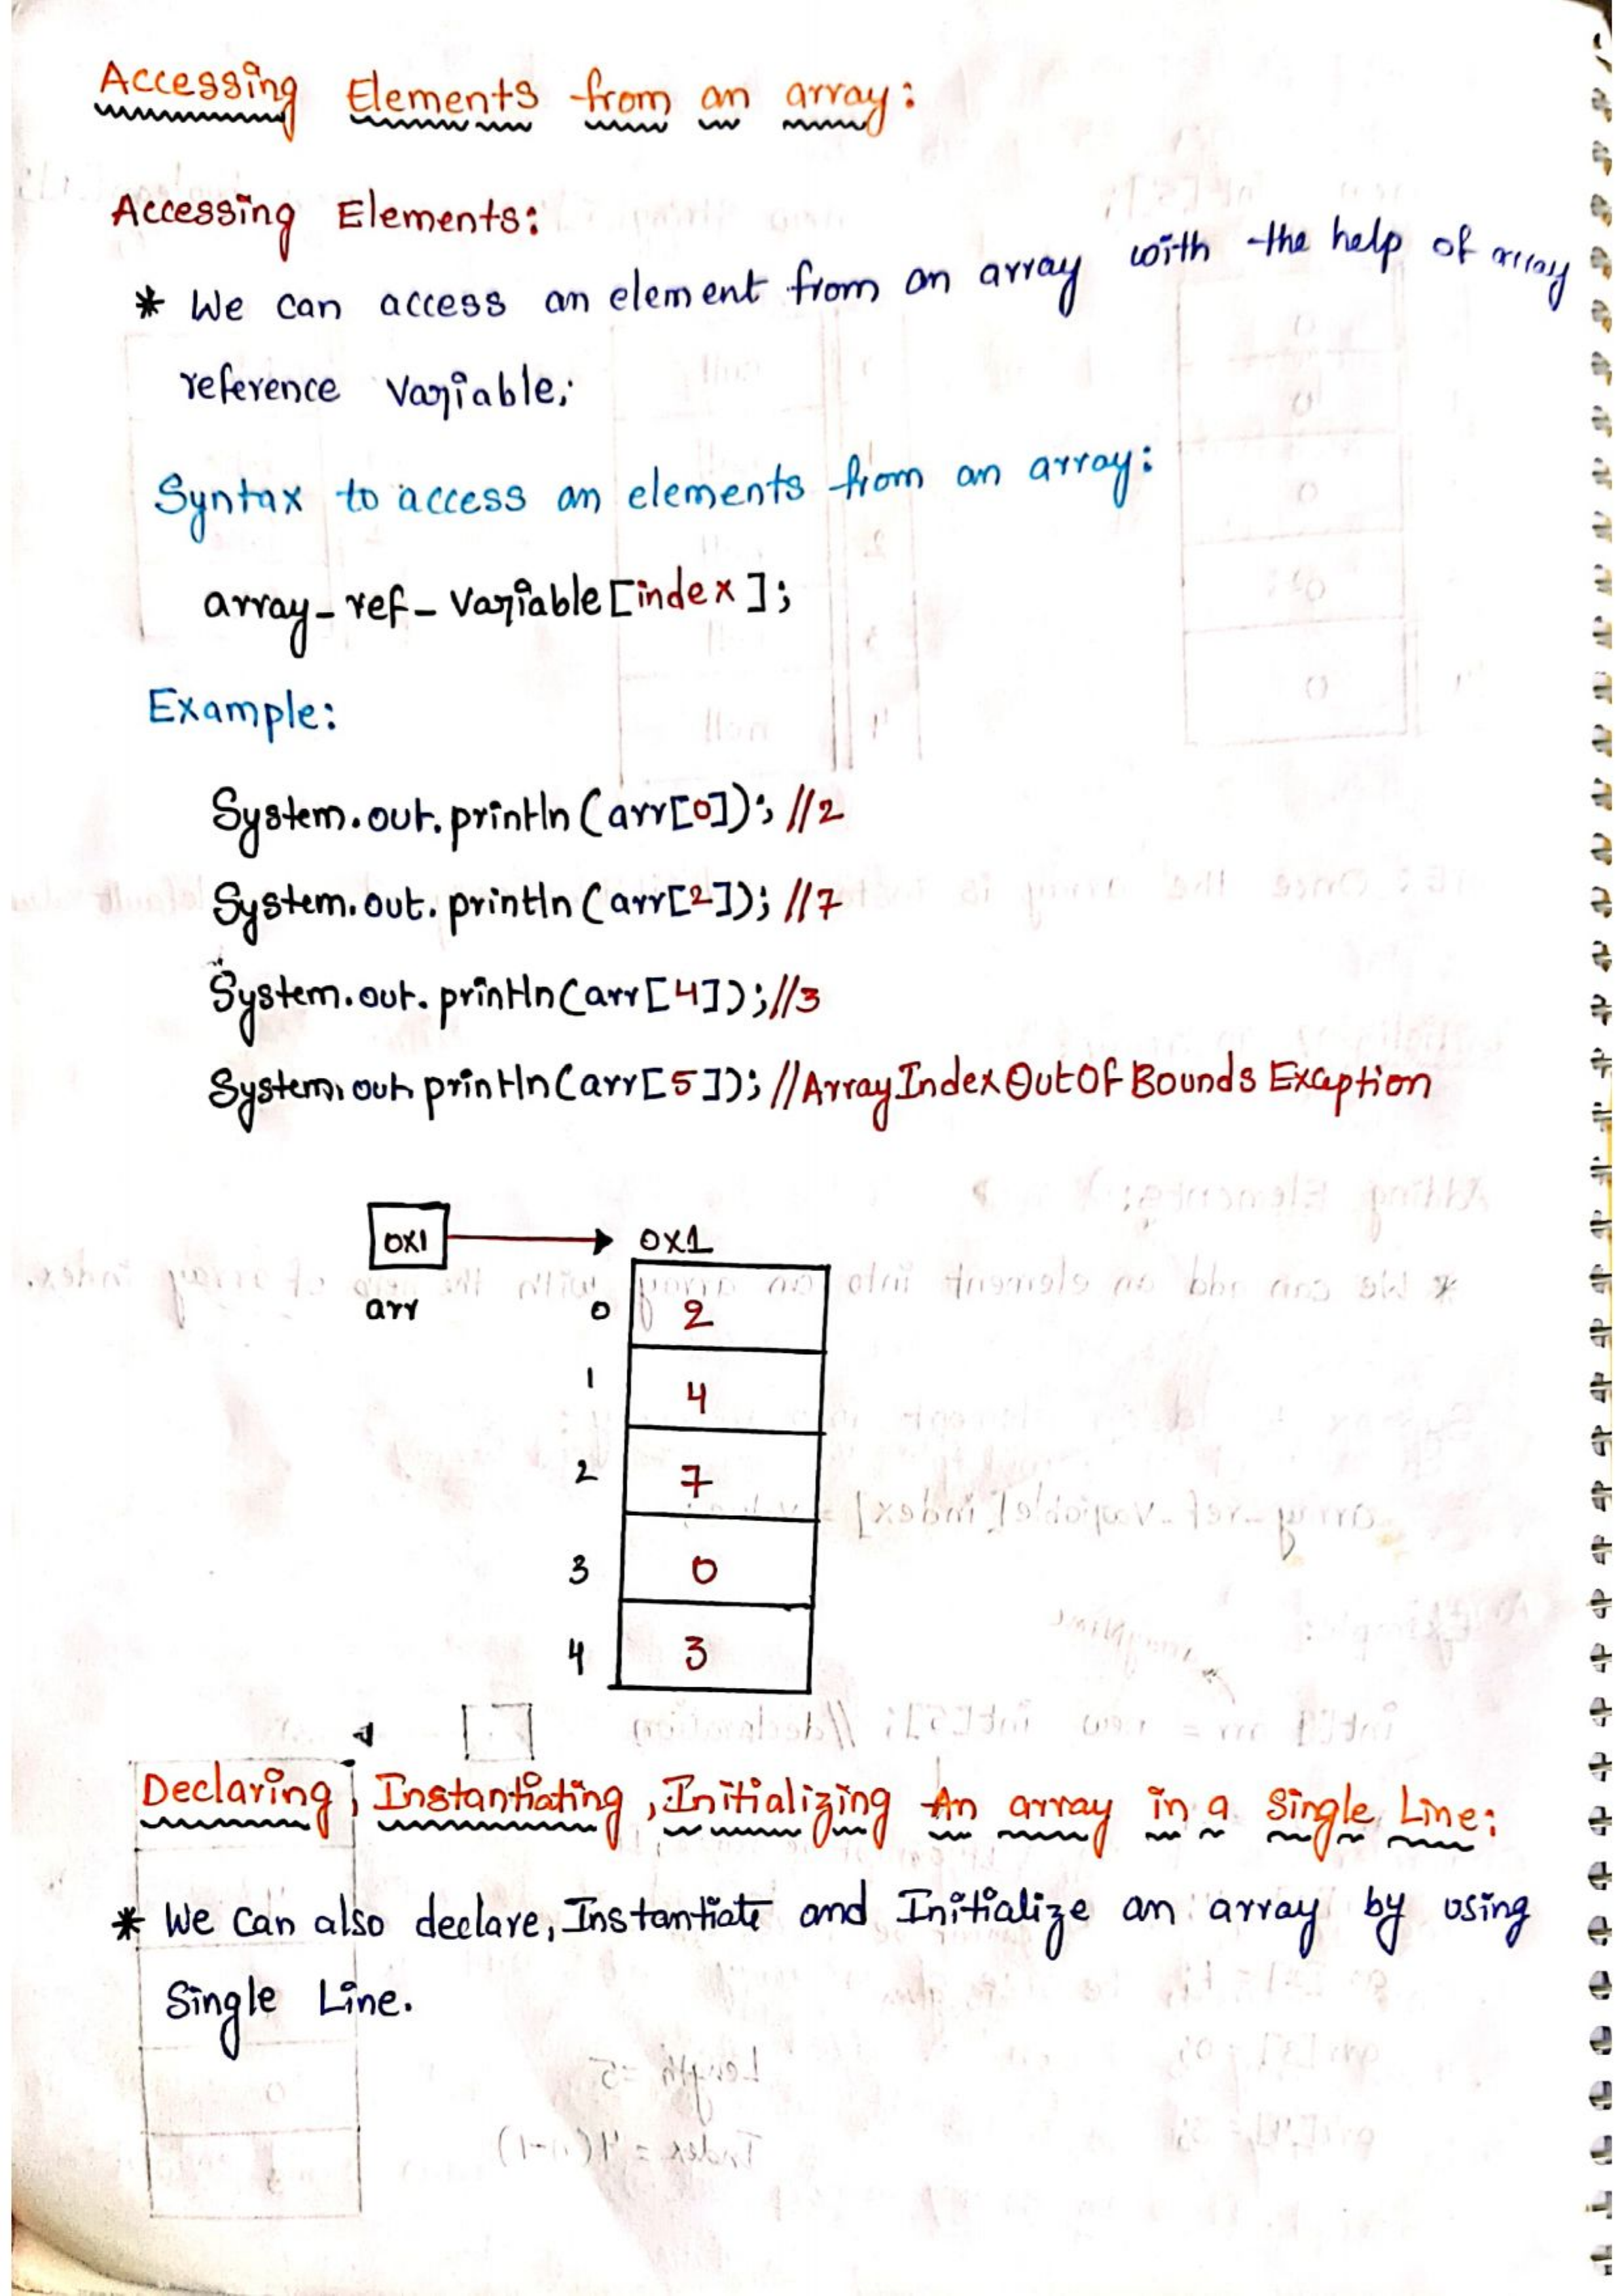 Accessing Elements from an array:
Accessing Elements:
* We can access an element from an array with the help of array
reference variable;
Syntax to access an elements from an array:
array_ref_variable[index];
Example:
System.out.println(arr[0]); //2
System.out.println(arr[2]); //7
System.out.println(arr[4]); //3
System.out.println(arr[5]); //ArrayIndexOutOfBounds Exception
0x1 0x1
arr 0 2
1 4
2 7
3 0
4 3
Declaring, Instantiating, Initializing An array in a Single Line:
* We can also declare, Instantiate and Initialize an array by using
Single Line.